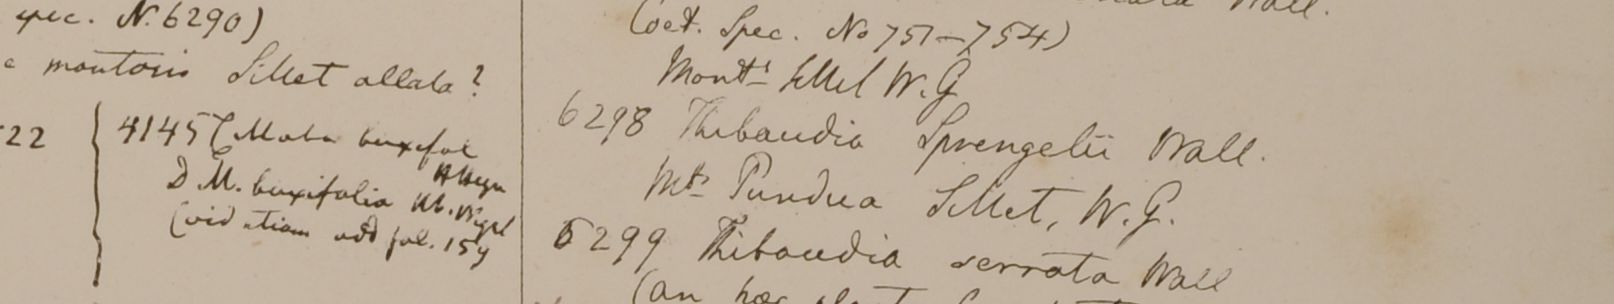 spec. N. 6290)
e montosis Sillet allata?
22
4145 C Maba buxifol
D M. buxifolia Hb. Wight
(vid etiam add fol. 159
Wall.
(Oct. Spec. No 751-754)
Mont's Sillet W. G
6298 Thibaudia Sprengelii Wall.
Mts Pundua Sillet, W. G.
6299 Thibaudia serrata Wall
(an hæc